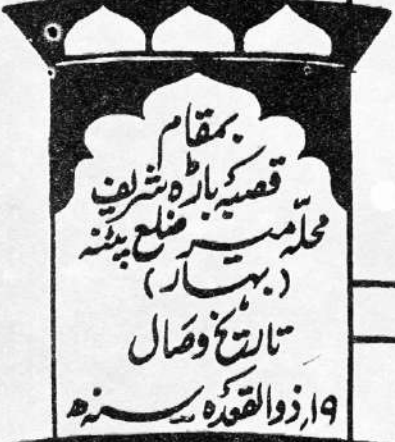 بمقام
قصبۂ باڑہ شریف
محلّہ میر ضلع پٹنہ
(بہار)
تاریخ وصال
۱۹؍ ذوالقعدہ سنہ ھ